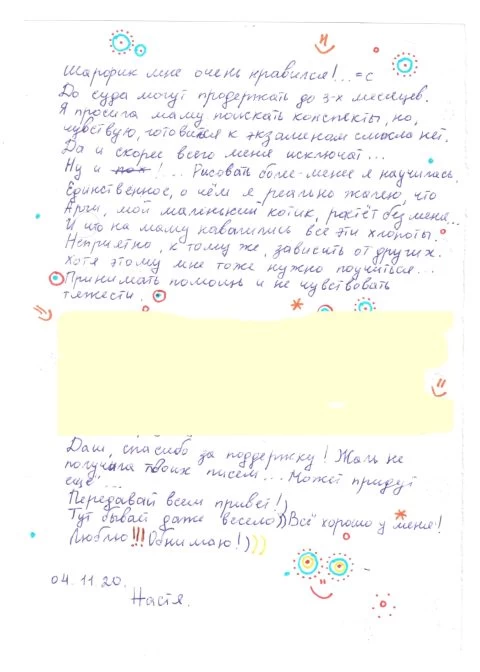 Шарфик мне очень нравился!..=с
До суда могут продержать до 3-х месяцев.
Я просила маму поискать конспекты, но,
чувствую, готовится к экзаменам смысла нет.
Да и скорее всего меня исключат...
Ну и пох!... Рисовать более-менее я научилась.
Единственное, о чём я реально жалею, что
Арчи, мой маленький котик, растёт без меня...
И что на маму навалились все эти хлопоты.
Неприятно, к тому же, зависить от других.
Хотя этому мне тоже нужно поучиться...
Принимать помощь и не чувствовать
тяжести.
Даш, спасибо за поддержку! Жаль не
получила твоих писем... Может придут
ещё...
Передавай всем привет!)
Тут бывай даже весело)) Всё хорошо у меня!
Люблю!!! Обнимаю!)))
04.11.20.
Настя.